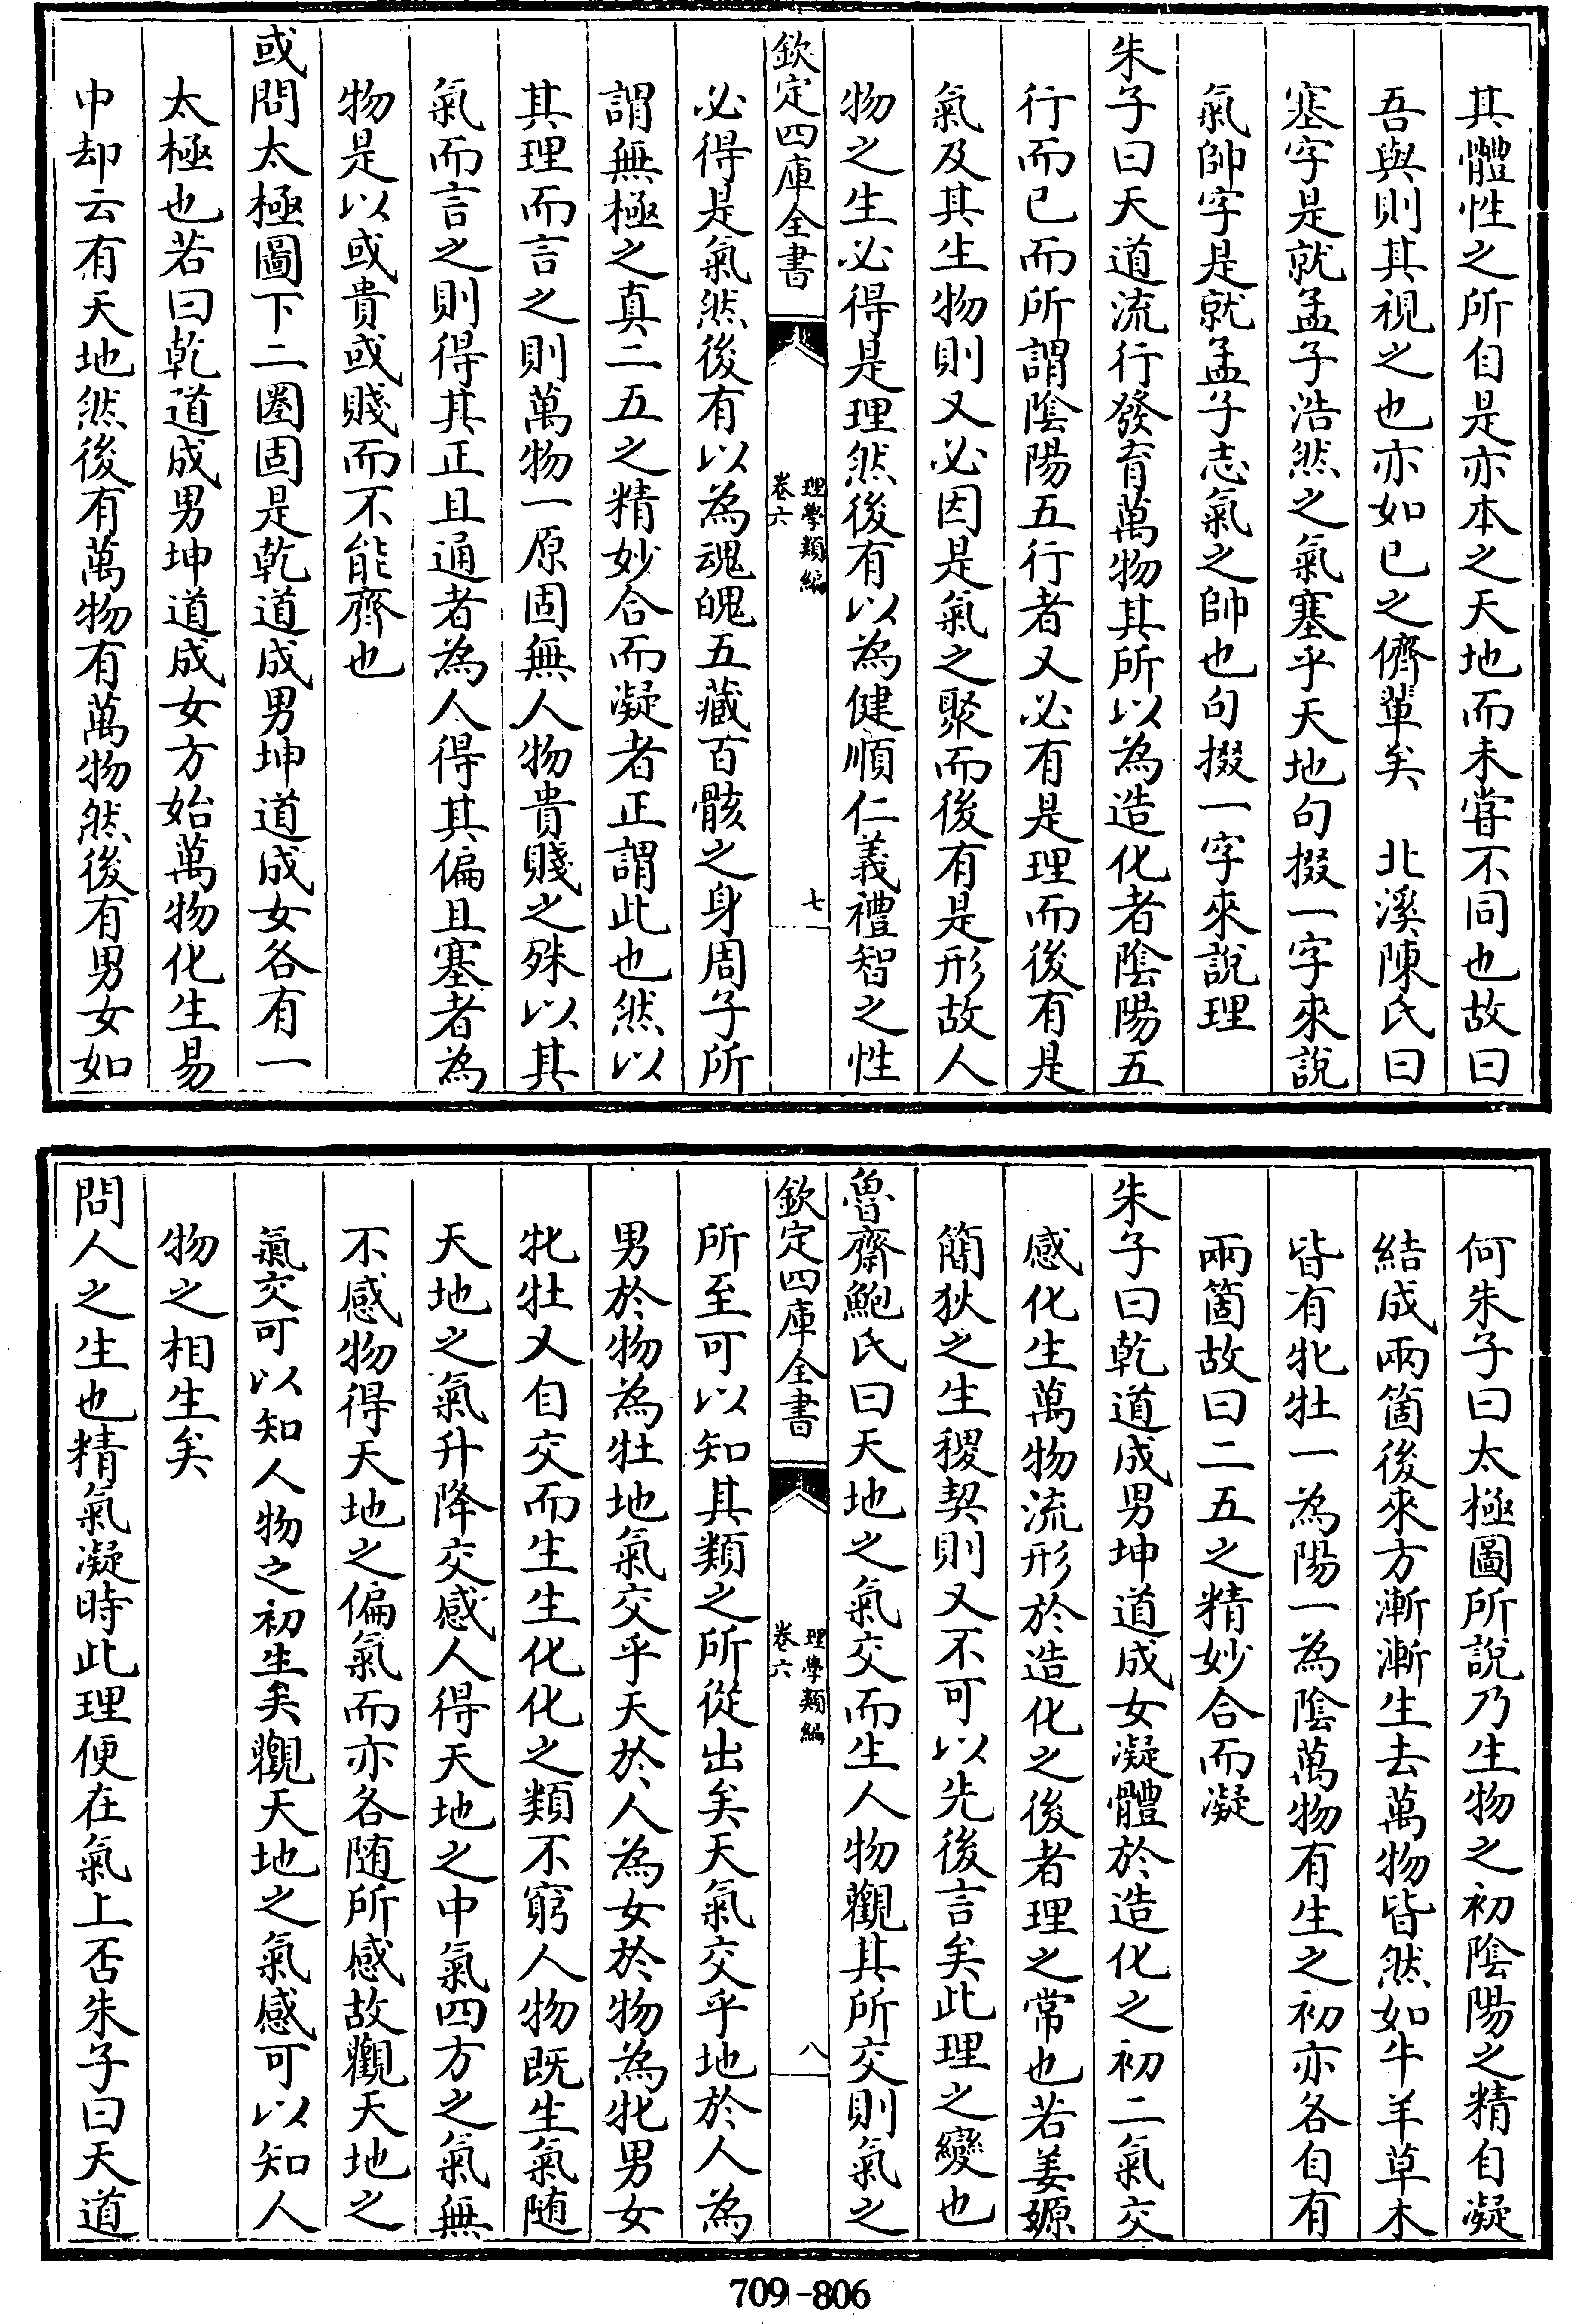 其體性之所自是亦本之天地而未甞不同也故曰
吾與則其視之也亦如已之儕輩矣　北溪陳氏曰
塞字是就孟子浩然之氣塞乎天地句掇一字來說
氣帥字是就孟子志氣之帥也句掇一字來說理
朱子曰天道流行發育萬物其所以為造化者陰陽五
行而已而所謂陰陽五行者又必有是理而後有是
氣及其生物則又必因是氣之聚而後有是形故人
物之生必得是理然後有以為健順仁義禮智之性
欽定四庫全書
理學類編
卷六
七
必得是氣然後有以為魂魄五藏百骸之身周子所
謂無極之真二五之精妙合而凝者正謂此也然以
其理而言之則萬物一原固無人物貴賤之殊以其
氣而言之則得其正且通者為人得其偏且塞者為
物是以或貴或賤而不能齊也
或問太極圖下二圈固是乾道成男坤道成女各有一
太極也若曰乾道成男坤道成女方始萬物化生易
中却云有天地然後有萬物有萬物然後有男女如
何朱子曰太極圖所說乃生物之初陰陽之精自凝
結成兩箇後來方漸漸生去萬物皆然如牛羊草木
皆有牝牡一為陽一為陰萬物有生之初亦各自有
兩箇故曰二五之精妙合而凝
朱子曰乾道成男坤道成女凝體於造化之初二氣交
感化生萬物流形於造化之後者理之常也若姜嫄
簡狄之生稷契則又不可以先後言矣此理之變也
魯齋鮑氏曰天地之氣交而生人物觀其所交則氣之
欽定四庫全書
理學類編
卷六
八
所至可以知其類之所從出矣天氣交乎地於人為
男於物為牡地氣交乎天於人為女於物為牝男女
牝牡又自交而生生化化之類不窮人物既生氣随
天地之氣升降交感人得天地之中氣四方之氣無
不感物得天地之偏氣而亦各随所感故觀天地之
氣交可以知人物之初生矣觀天地之氣感可以知人
物之相生矣
問人之生也精氣凝時此理便在氣上否朱子曰天道
709-806